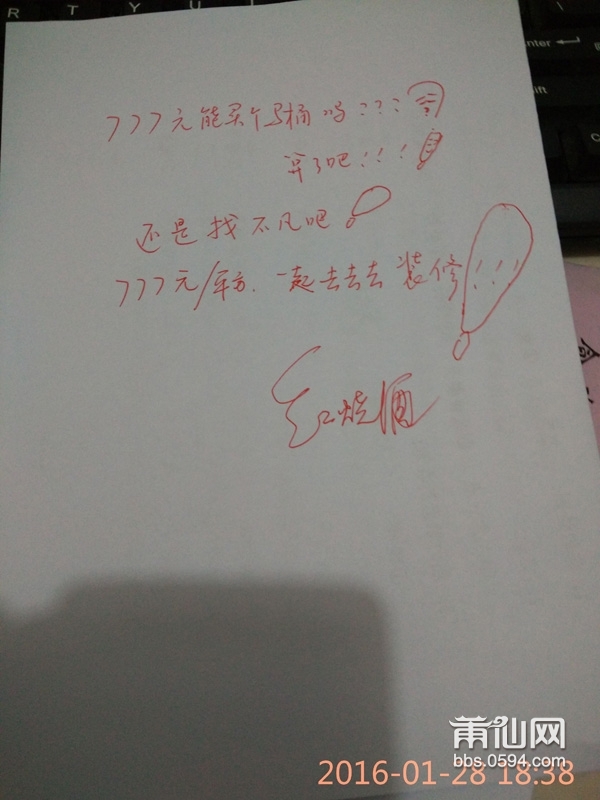 R T Y U
enter
shift
777元能买个马桶吗???
算了吧!!!
还是找不凡吧!
777元/平方.一起去去去装修!
红烧酒
莆仙网
bbs.0594.com
2016-01-28 18:38